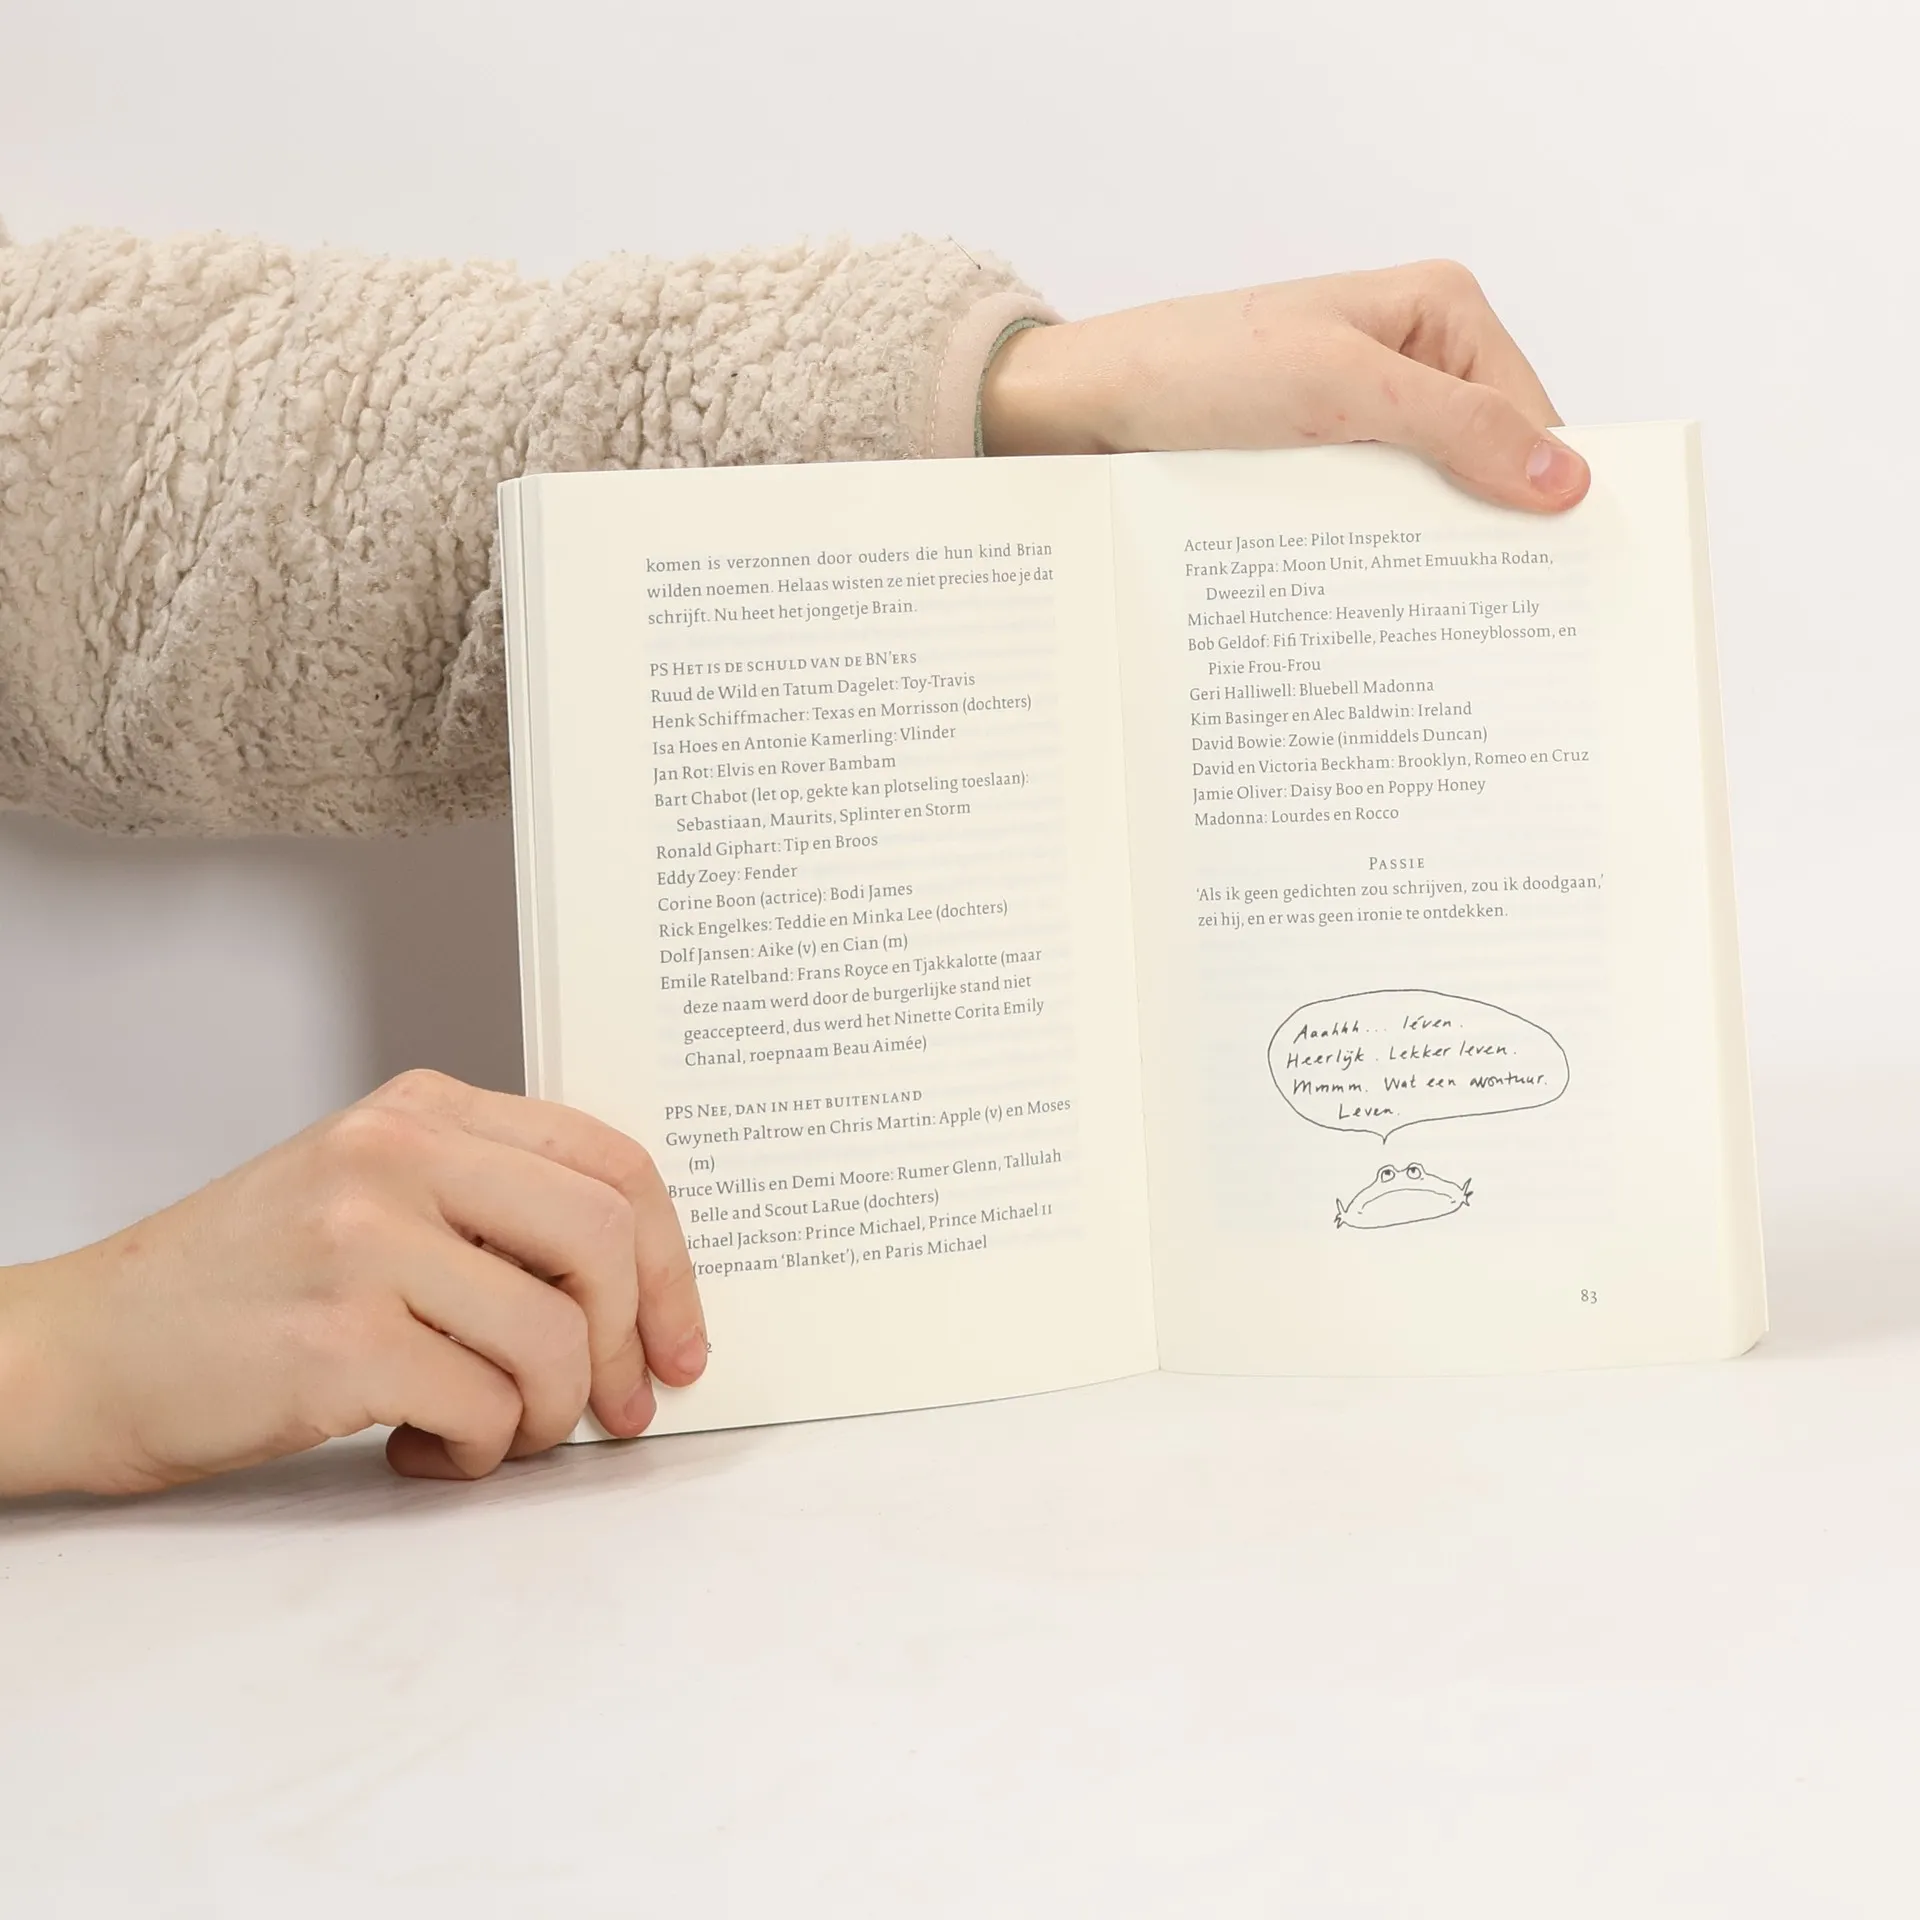 komen is verzonnen door ouders die hun kind Brian
wilden noemen. Helaas wisten ze niet precies hoe je dat
schrijft. Nu heet het jongetje Brain.
PS Het is de schuld van de BN'ers
Ruud de Wild en Tatum Dagelet: Toy-Travis
Henk Schiffmacher: Texas en Morrisson (dochters)
Isa Hoes en Antonie Kamerling: Vlinder
Jan Rot: Elvis en Rover Bambam
Bart Chabot (let op, gekte kan plotseling toeslaan):
Sebastiaan, Maurits, Splinter en Storm
Ronald Giphart: Tip en Broos
Eddy Zoey: Fender
Corine Boon (actrice): Bodi James
Rick Engelkes: Teddie en Minka Lee (dochters)
Dolf Jansen: Aike (v) en Cian (m)
Emile Ratelband: Frans Royce en Tjakkalotte (maar
deze naam werd door de burgerlijke stand niet
geaccepteerd, dus werd het Ninette Corita Emily
Chanal, roepnaam Beau Aimée)
PPS Nee, dan in het buitenland
Gwyneth Paltrow en Chris Martin: Apple (v) en Moses
(m)
Bruce Willis en Demi Moore: Rumer Glenn, Tallulah
Belle and Scout LaRue (dochters)
ichael Jackson: Prince Michael, Prince Michael II
(roepnaam 'Blanket'), en Paris Michael
2
Acteur Jason Lee: Pilot Inspektor
Frank Zappa: Moon Unit, Ahmet Emuukha Rodan,
Dweezil en Diva
Michael Hutchence: Heavenly Hiraani Tiger Lily
Bob Geldof: Fifi Trixibelle, Peaches Honeyblossom, en
Pixie Frou-Frou
Geri Halliwell: Bluebell Madonna
Kim Basinger en Alec Baldwin: Ireland
David Bowie: Zowie (inmiddels Duncan)
David en Victoria Beckham: Brooklyn, Romeo en Cruz
Jamie Oliver: Daisy Boo en Poppy Honey
Madonna: Lourdes en Rocco
Passie
'Als ik geen gedichten zou schrijven, zou ik doodgaan,'
zei hij, en er was geen ironie te ontdekken.
Aaahhh... léven.
Heerlijk. Lekker leven.
Mmmm. Wat een avontuur.
Leven.
83